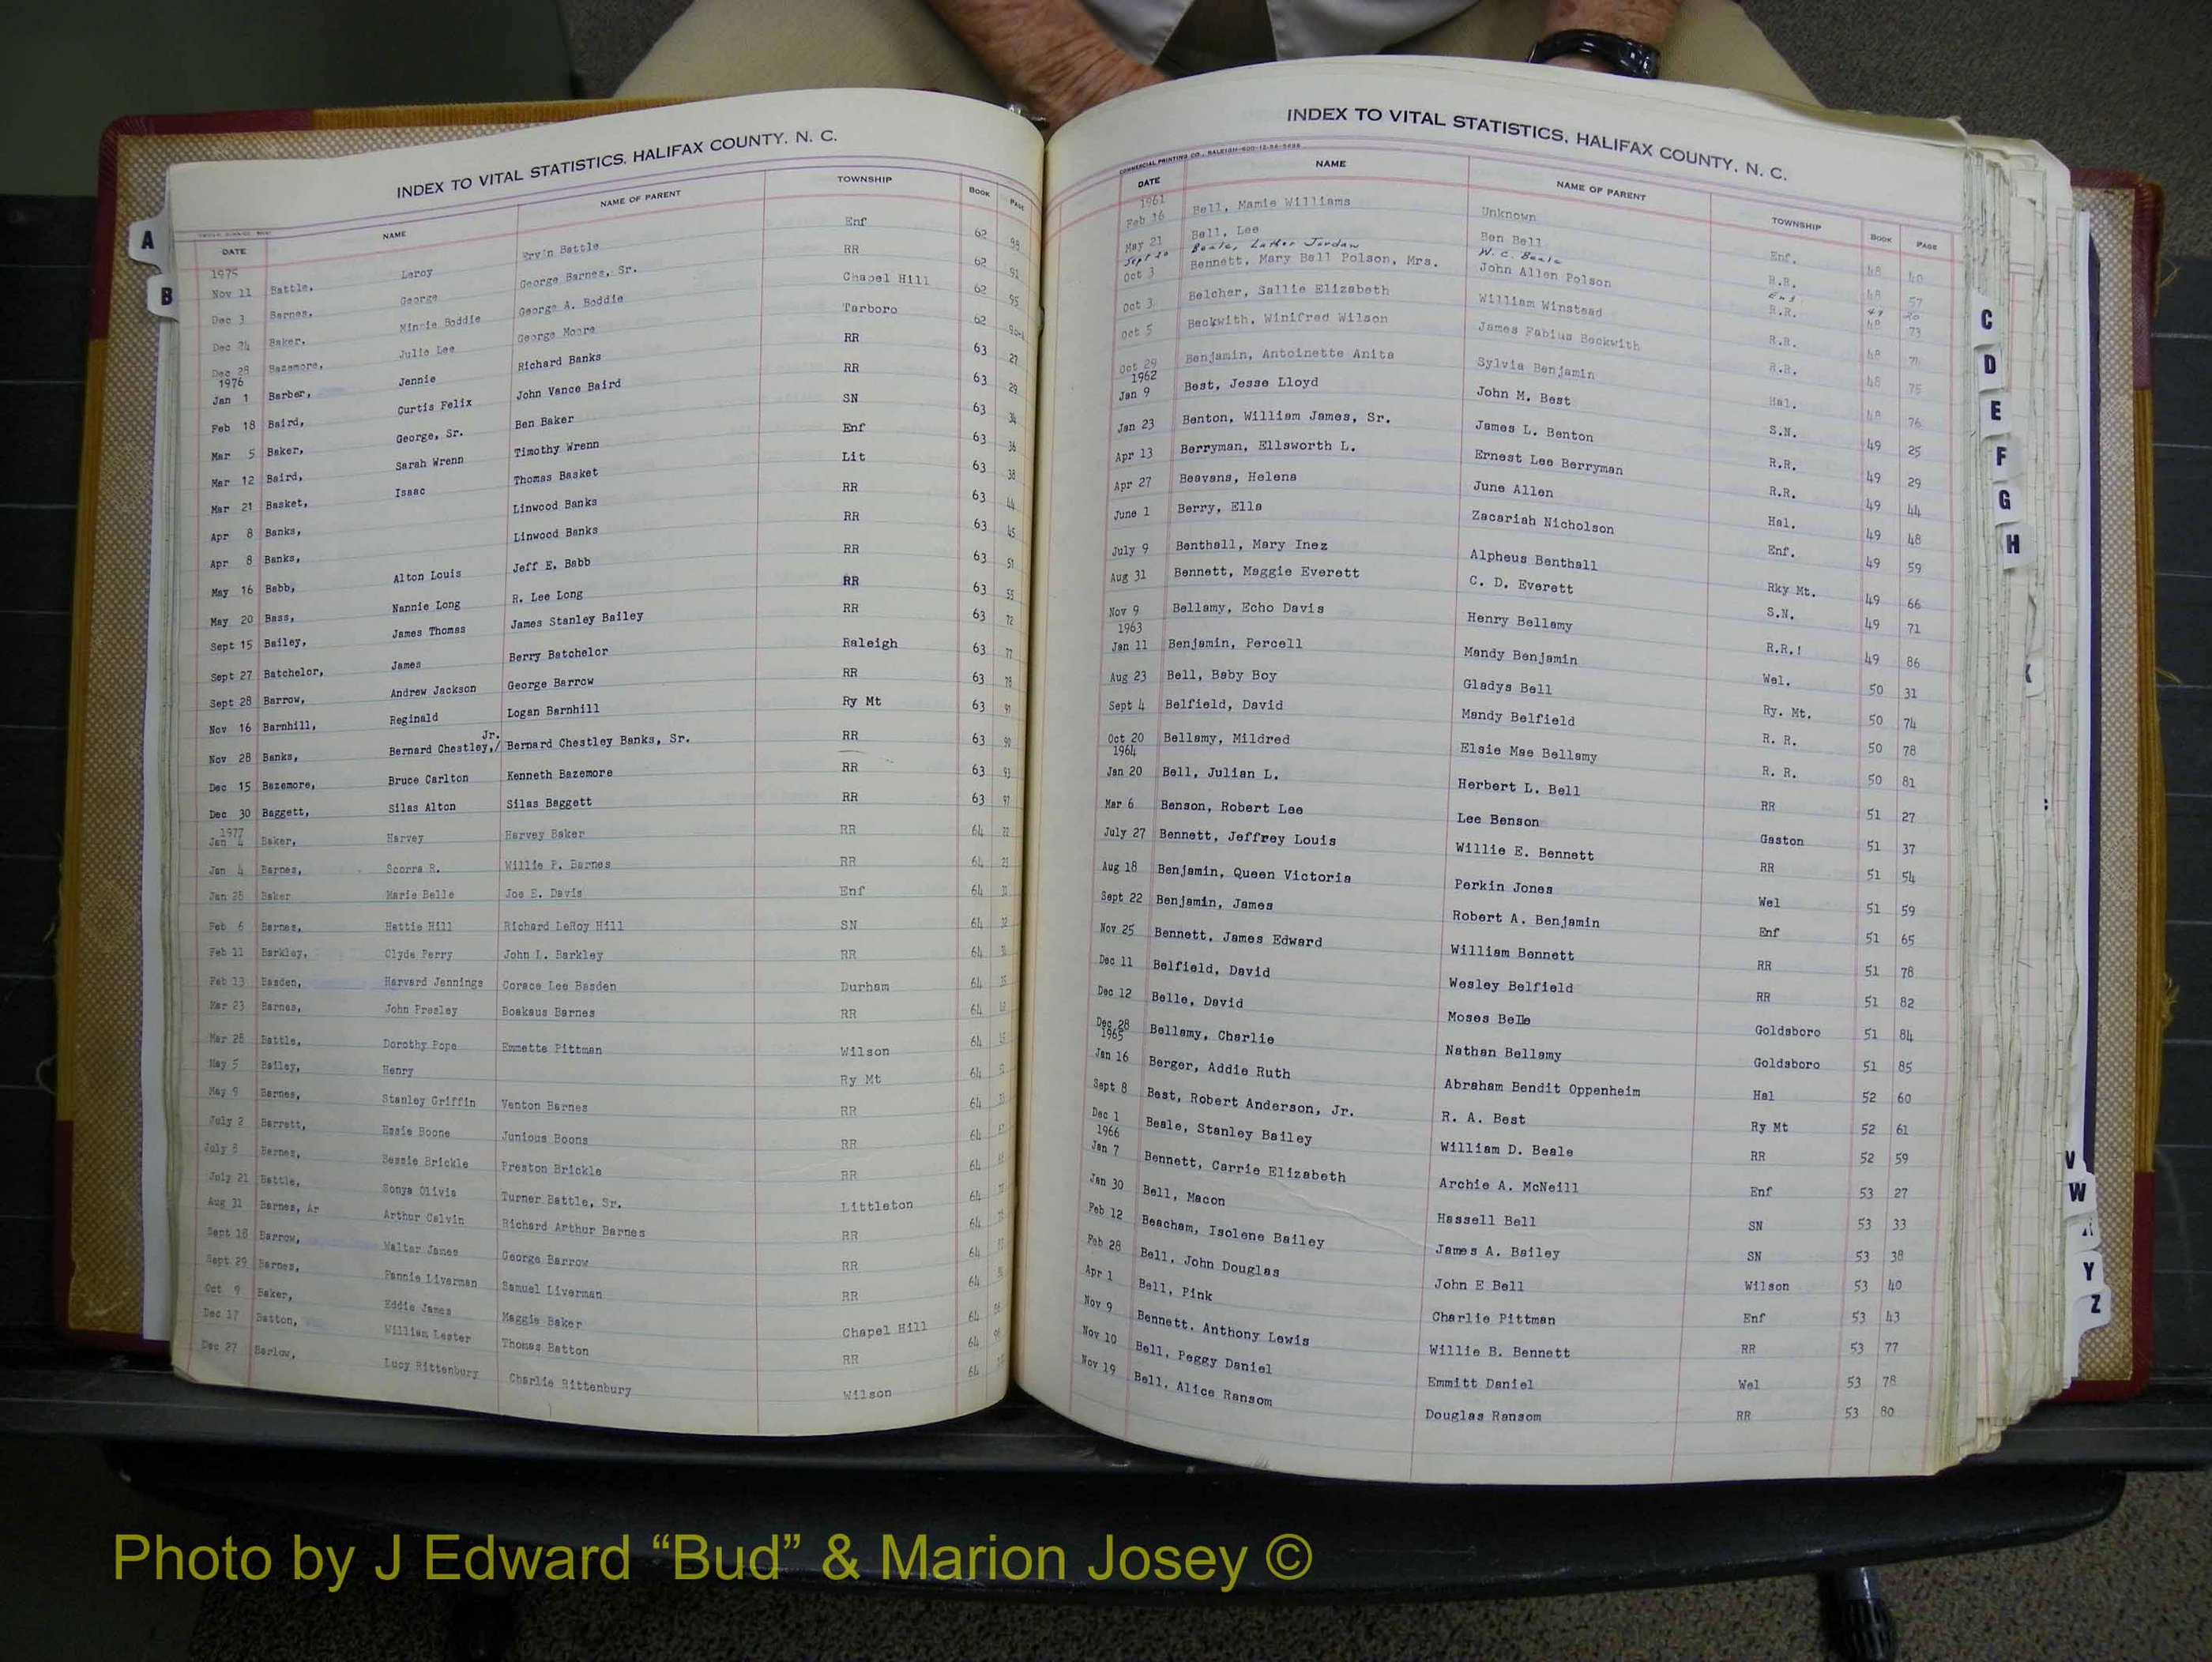 INDEX TO VITAL STATISTICS, HALIFAX COUNTY, N. C.
DATE NAME NAME OF PARENT TOWNSHIP BOOK PAGE
1975
Nov 11 Battle, Leroy Ervin Battle Enf 62 88
Dec 3 Barnes, George George Barnes, Sr. RR 62 91
Dec 24 Baker, Minnie Boddie George A. Boddie Chapel Hill 62 95
Dec 28 Bazemore, Julia Lee George Moore Tarboro 62
1976
Jan 1 Barber, Jennie Richard Banks RR 63 27
Feb 18 Baird, Curtis Felix John Vance Baird RR 63 29
Mar 5 Baker, George, Sr. Ben Baker SN 63 34
Mar 12 Baird, Sarah Wrenn Timothy Wrenn Enf 63 36
Mar 21 Basket, Isaac Thomas Basket Lit 63 38
Apr 8 Banks, Linwood Banks RR 63 44
Apr 8 Banks, Linwood Banks RR 63 45
May 16 Babb, Alton Louis Jeff E. Babb RR 63 51
May 20 Bass, Nannie Long R. Lee Long RR 63 55
Sept 15 Bailey, James Thomas James Stanley Bailey RR 63 72
Sept 27 Batchelor, James Berry Batchelor Raleigh 63 77
Sept 28 Barrow, Andrew Jackson George Barrow RR 63 78
Nov 16 Barnhill, Reginald Logan Barnhill Ry Mt 63 91
Jr.
Nov 28 Banks, Bernard Chestley,/ Bernard Chestley Banks, Sr. RR 63 90
Dec 15 Bazemore, Bruce Carlton Kenneth Bazemore RR 63 93
Dec 30 Baggett, Silas Alton Silas Baggett RR 63 97
1977
Jan 4 Baker, Harvey Harvey Baker RR 64 22
Jan 4 Barnes, Scorra R. Willie F. Barnes RR 64 23
Jan 28 Baker Marie Belle Joe E. Davis Enf 64
Feb 6 Barnes, Hattie Hill Richard LeRoy Hill SN 64
Feb 11 Barkley, Clyde Perry John L. Barkley RR 64
Feb 13 Basden, Harvard Jennings Corace Lee Basden Durham 64
Mar 23 Barnes, John Presley Boakaus Barnes RR 64
Mar 28 Battle, Dorothy Pope Emmette Pittman Wilson 64
May 5 Bailey, Henry Ry Mt 64
May 9 Barnes, Stanley Griffin Venton Barnes RR 64
July 2 Barrett, Essie Boone Junious Boone RR 64
July 8 Barnes, Bessie Brickle Preston Brickle RR 64
July 21 Battle, Sonya Olivia Turner Battle, Sr. Littleton 64
Aug 31 Barnes, Ar Arthur Calvin Richard Arthur Barnes RR 64
Sept 18 Barrow, Walter James George Barrow RR 64
Sept 29 Barnes, Fannie Liverman Samuel Liverman RR 64
Oct 9 Baker, Eddie James Maggie Baker Chapel Hill 64
Dec 17 Batton, William Lester Thomas Batton RR 64
Dec 27 Barlow, Lucy Rittenbury Charlie Rittenbury Wilson 64
INDEX TO VITAL STATISTICS, HALIFAX COUNTY, N. C.
COMMERCIAL PRINTING CO., RALEIGH
DATE NAME NAME OF PARENT TOWNSHIP BOOK PAGE
1961
Feb 16 Bell, Mamie Williams Unknown Enf. 48 40
May 21 Bell, Lee Ben Bell R.R. 48 57
Sept 20 Beale, Luther Jordan W. C. Beale Enf 49 20
Oct 3 Bennett, Mary Bell Polson, Mrs. John Allen Polson R.R. 48 73
Oct 3 Belcher, Sallie Elizabeth William Winstead R.R. 48 74
Oct 5 Beckwith, Winifred Wilson James Fabius Beckwith R.R. 48 75
Oct 29 Benjamin, Antoinette Anita Sylvia Benjamin Hal. 48 76
1962
Jan 9 Best, Jesse Lloyd John M. Best S.N. 49 25
Jan 23 Benton, William James, Sr. James L. Benton R.R. 49 29
Apr 13 Berryman, Ellsworth L. Ernest Lee Berryman R.R. 49 44
Apr 27 Beavans, Helena June Allen Hal. 49 48
June 1 Berry, Ella Zacariah Nicholson Enf. 49 59
July 9 Benthall, Mary Inez Alpheus Benthall Rky Mt. 49 66
Aug 31 Bennett, Maggie Everett C. D. Everett S.N. 49 71
Nov 9 Bellamy, Echo Davis Henry Bellamy R.R.! 49 86
1963
Jan 11 Benjamin, Percell Mandy Benjamin Wel. 50 31
Aug 23 Bell, Baby Boy Gladys Bell Ry. Mt. 50 74
Sept 4 Belfield, David Mandy Belfield R. R. 50 78
Oct 20 Bellamy, Mildred Elsie Mae Bellamy R. R. 50 81
1964
Jan 20 Bell, Julian L. Herbert L. Bell RR 51 27
Mar 6 Benson, Robert Lee Lee Benson Gaston 51 37
July 27 Bennett, Jeffrey Louis Willie E. Bennett RR 51 54
Aug 18 Benjamin, Queen Victoria Perkin Jones Wel 51 59
Sept 22 Benjamin, James Robert A. Benjamin Enf 51 65
Nov 25 Bennett, James Edward William Bennett RR 51 78
Dec 11 Belfield, David Wesley Belfield RR 51 82
Dec 12 Belle, David Moses Belle Goldsboro 51 84
Dec 28 Bellamy, Charlie Nathan Bellamy Goldsboro 51 85
1965
Jan 16 Berger, Addie Ruth Abraham Bendit Oppenheim Hal 52 60
Sept 8 Best, Robert Anderson, Jr. R. A. Best Ry Mt 52 61
Dec 1 Beale, Stanley Bailey William D. Beale RR 52 59
1966
Jan 7 Bennett, Carrie Elizabeth Archie A. McNeill Enf 53 27
Jan 30 Bell, Macon Hassell Bell SN 53 33
Feb 12 Beacham, Isolene Bailey James A. Bailey SN 53 38
Feb 28 Bell, John Douglas John E Bell Wilson 53 40
Apr 1 Bell, Pink Charlie Pittman Enf 53 43
Nov 9 Bennett, Anthony Lewis Willie B. Bennett RR 53 77
Nov 10 Bell, Peggy Daniel Emmitt Daniel Wel 53 78
Nov 19 Bell, Alice Ransom Douglas Ransom RR 53 80
A
B
C
D
E
F
G
H
V
W
Y
Z
Photo by J Edward “Bud” & Marion Josey ©